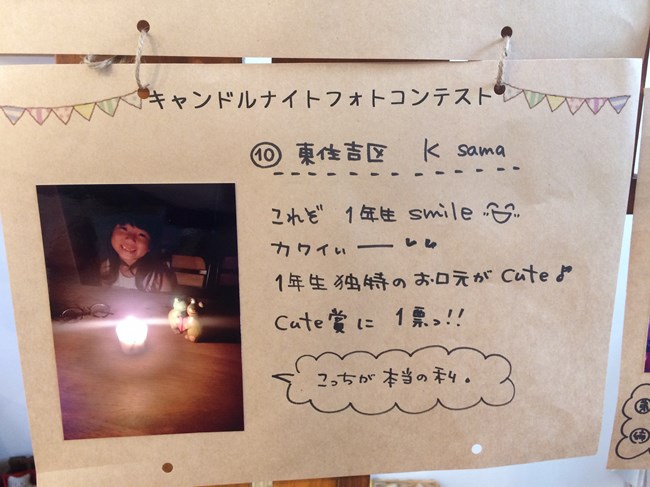 キャンドルナイトフォトコンテスト
⑩ 東住吉区 K sama
これぞ 1年生 smile
カワイぃー
1年生独特のお口元がcute♪
cute賞に 1票っ!!
こっちが本当の私。